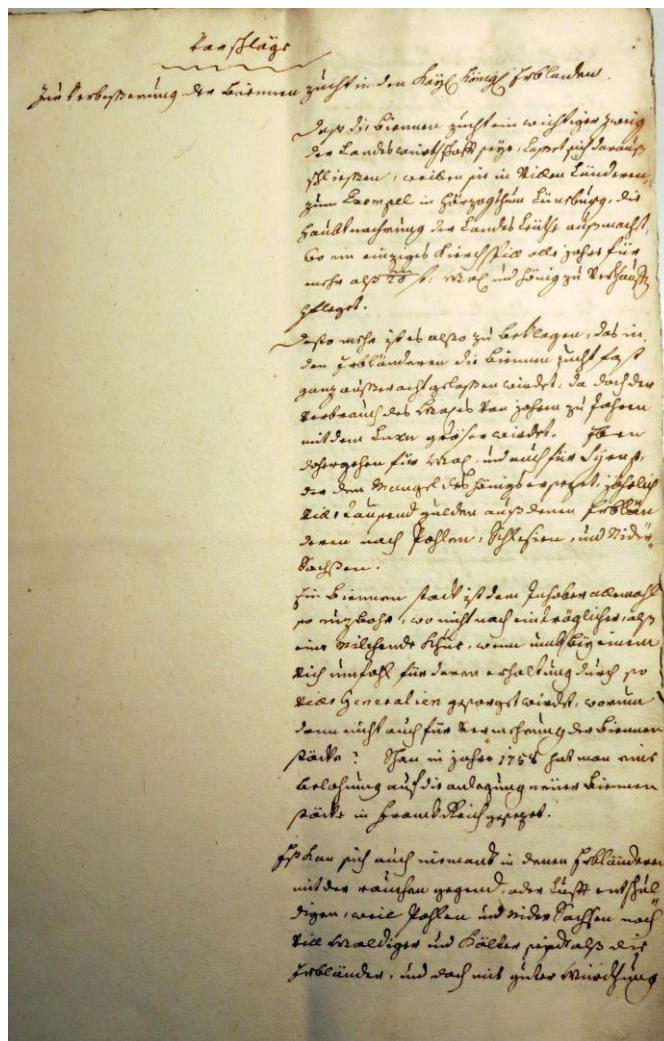 Vorschläge
Zur Verbeßerung der Biennen zucht in den Kayl. Königl. Erblanden.
Daß die Biennen zucht ein wichtiger zweig
der Landeswürthschafft seye, lasset sich darauß
schließen, weillen sie in Villen Länderen,
zum Exempel in Hörzogthum Lünsburg, die
Haubtnachrung der Landes Leüthe außmacht,
wo ein einziges Kierchspiel alle Jahre für
mehr alß f: Wax und Hönig zu Verkauffen
pfleget.
Desto mehr ist es also zu beklagen, das in
den Erbländeren die Biennen zucht fast
ganz außer acht gelaßen wirdet: da doch der
Verbrauch des Waxes Von Jahren zu Jahren
mit dem Luxu größer wirdet. Eben
dahero gehen für Wax, und auch für Syrup,
der den Mangl des Hönigs ersezet, jährlich
Ville Tausend gulden auß denen Erblän
deren nach Pohlen, Schlesien, und Nider-
Sachßen.
Ein Biennen stock ist dem Inhaber allemahl
so nuzbahr, wo nicht noch einträglicher, alß
eine Milchende Khue, wenn nun bey einem
Vich umfahl für deren erhaltung durch so
Ville Generalien gesorget wirdet, worum
dann nicht auch für Vermehrung der Biennen
stöcke? Schon in Jahre 1758 hat man eine
belohnung auf die anlegung neüer Biennen
stöcke in Franckreich gesezet.
Es kan sich auch niemand in denen Erbländeren
mit der rauchen gegend, oder Lufft entschul
digen, weil Pohlen und Nider Sachsen noch
Vill Waldiger und Kälter seynd alß die
Erbländer, und doch mit guter Würckhung